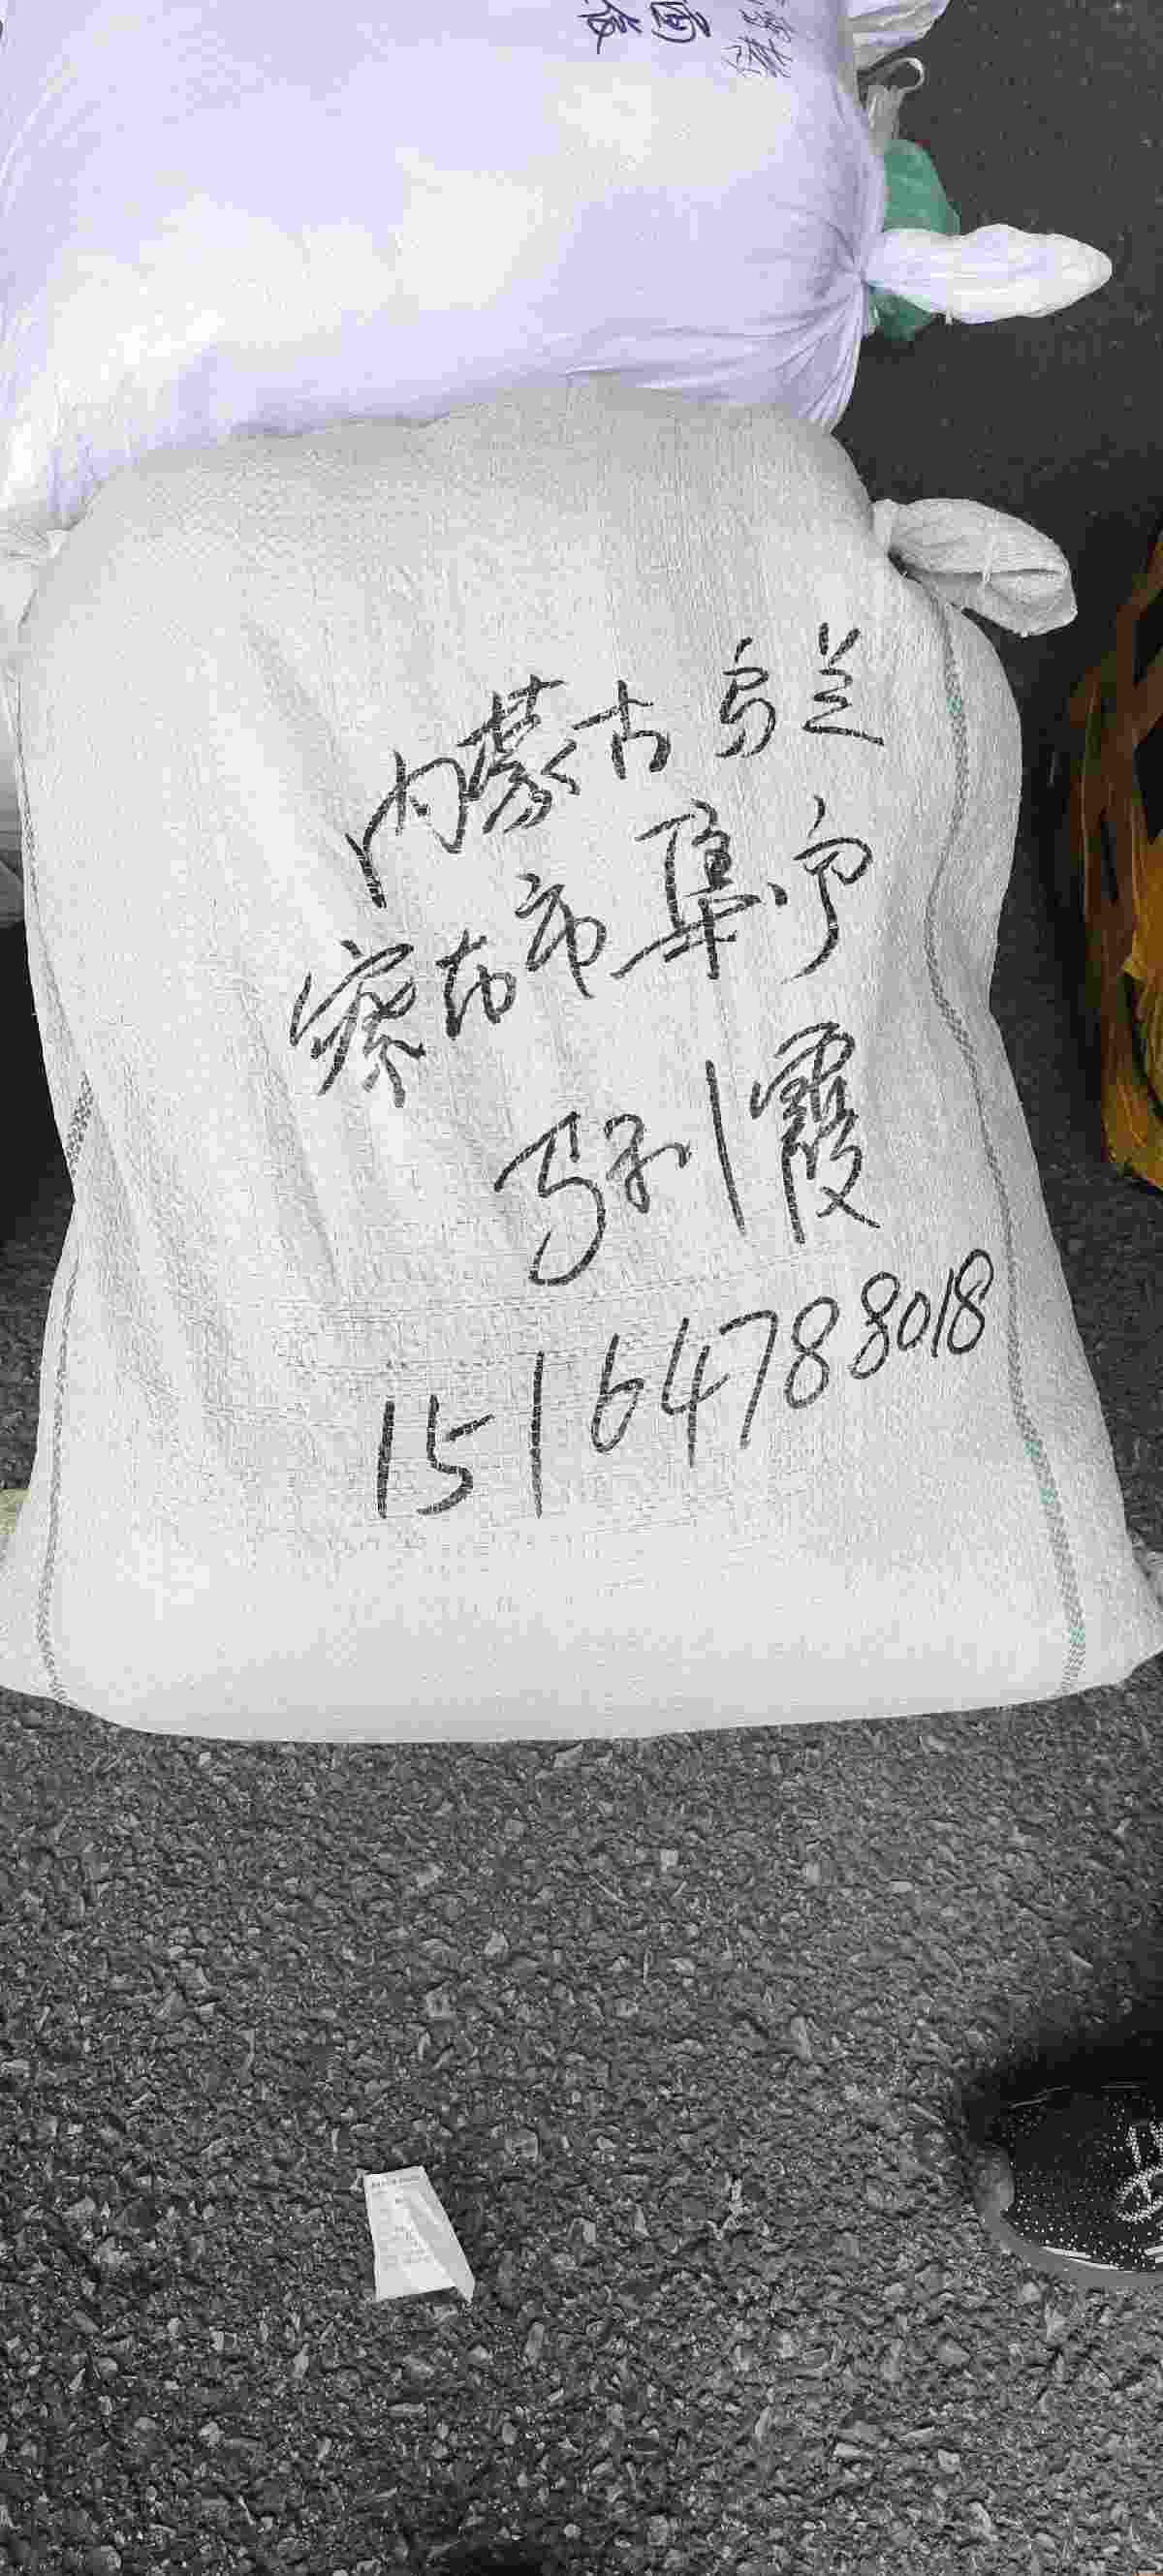 内蒙古乌兰
察布市集宁
马利霞
15164788018